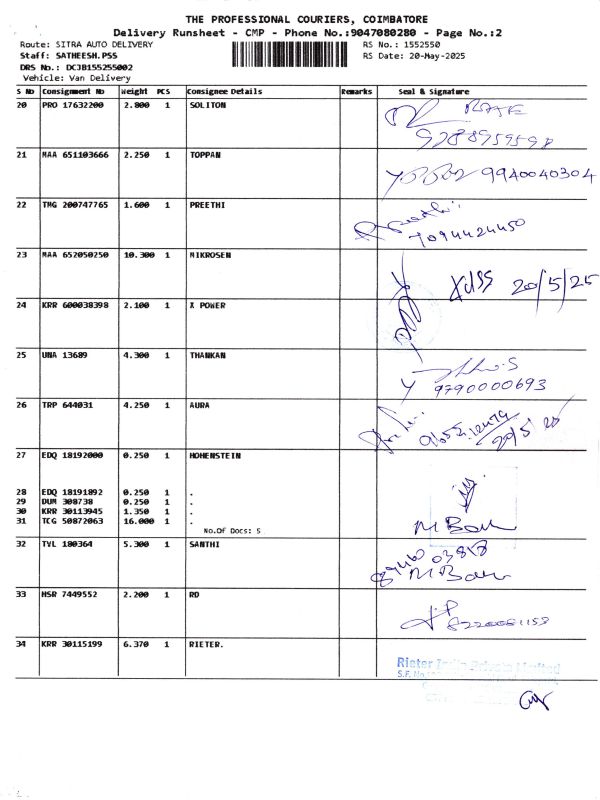 THE PROFESSIONAL COURIERS, COIMBATORE
Delivery Runsheet - CMP - Phone No.:9047080280 - Page No.:2
Route: SITRA AUTO DELIVERY RS No.: 1552550
Staff: SATHEESH.PSS RS Date: 20-May-2025
DRS No.: DCJB155255002
Vehicle: Van Delivery
S No Consignment No Weight PCS Consignee Details Remarks Seal & Signature
20 PRO 17632200 2.800 1 SOLITON
9788959598
21 MAA 651103666 2.250 1 TOPPAN
9940040304
22 TMG 200747765 1.600 1 PREETHI
7094424450
23 MAA 652050250 10.300 1 MIKROSEN
20/5/25
24 KRR 600038398 2.100 1 X POWER
25 UNA 13689 4.300 1 THANKAN
9790000693
26 TRP 644031 4.250 1 AURA
20/5/20
27 EDQ 18192000 0.250 1 HOHENSTEIN
28 EDQ 18191892 0.250 1 .
29 DUM 308738 0.250 1 .
30 KRR 30113945 1.350 1 .
31 TCG 50872063 16.000 1 .
No.OF Docs: 5
32 TVL 180364 5.300 1 SANTHI
33 HSR 7449552 2.200 1 RD
34 KRR 30115199 6.370 1 RIETER.
Rieter India Private Limited
S.F. No.